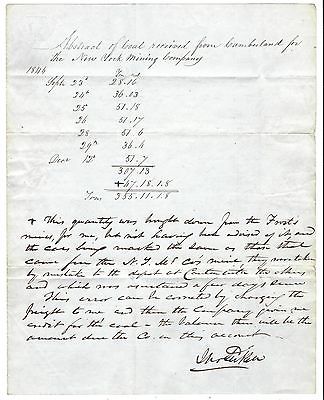 Abstract of Coal received from Cumberland for
the New York Mining Company
1846
Septr 23d 28.16
24th 36.03
25 51.18
26 51.17
28 51.6
29th 36.4
Decr 12th 51.7
307.13
+ 47.18.1.8
Tons 355.11.1.8
+ This quantity was brought down from the Frosts
mines, for me, but not having been advised of it, and
the cars being marked the same as those that
came from the N.Y.M. Co's mine, they were taken
by mistake to the depot at Canton with the others
and which was ascertained a few days since
This error can be corrected by charging the
freight to me and then the Company give me
credit for the coal - the balance then will be the
amount due the Co. on this account